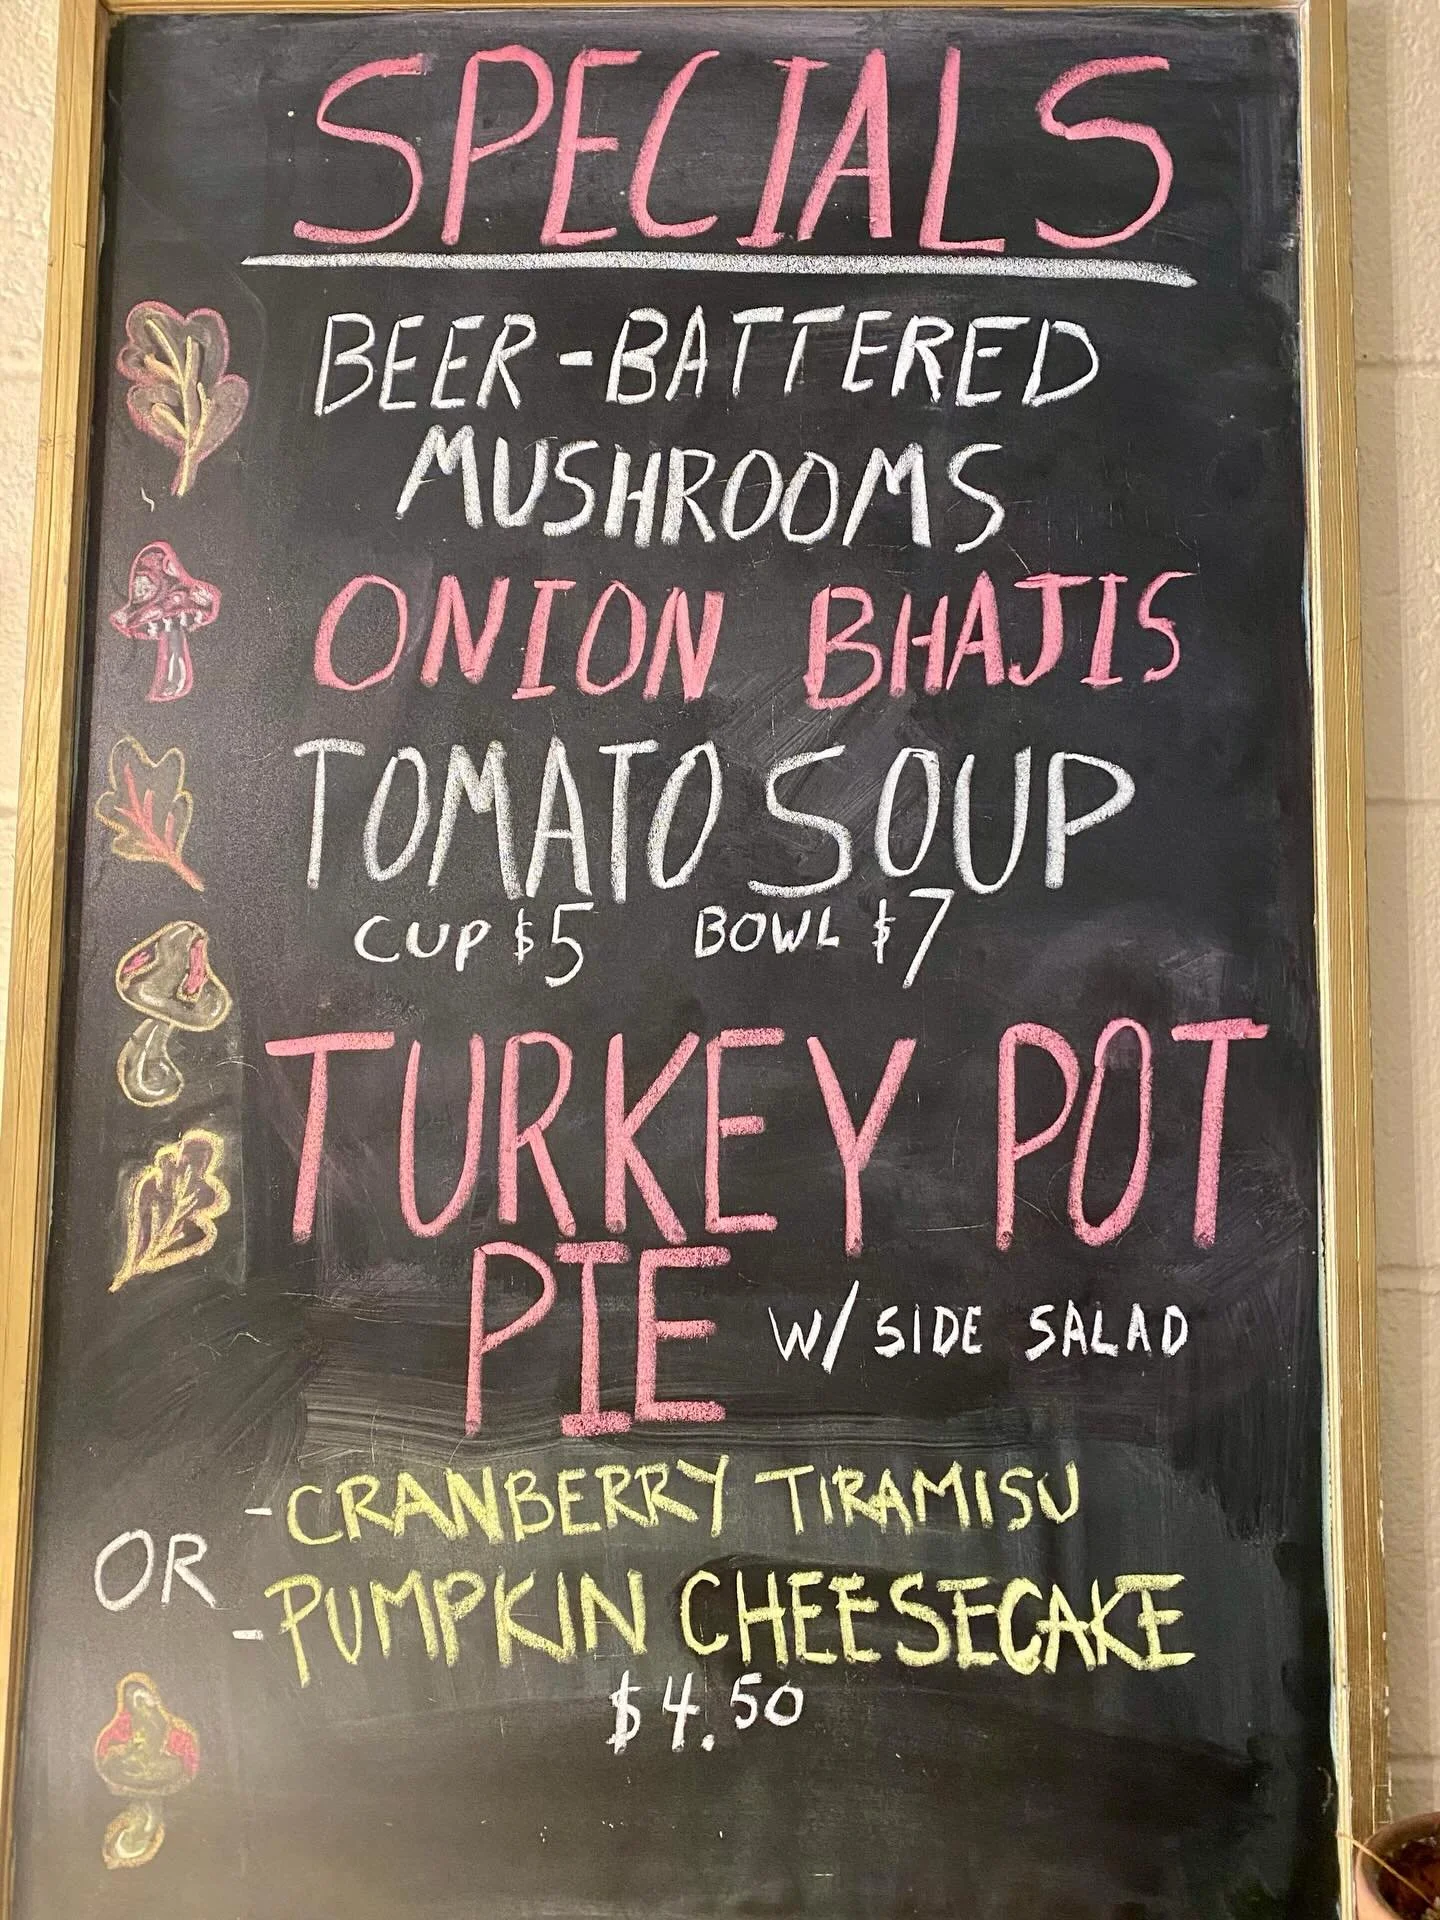 SPECIALS
BEER-BATTERED
MUSHROOMS
ONION BHAJIS
TOMATO SOUP
CUP $5 BOWL $7
TURKEY POT
PIE W/ SIDE SALAD
-CRANBERRY TIRAMISU
OR
-PUMPKIN CHEESECAKE
$4.50